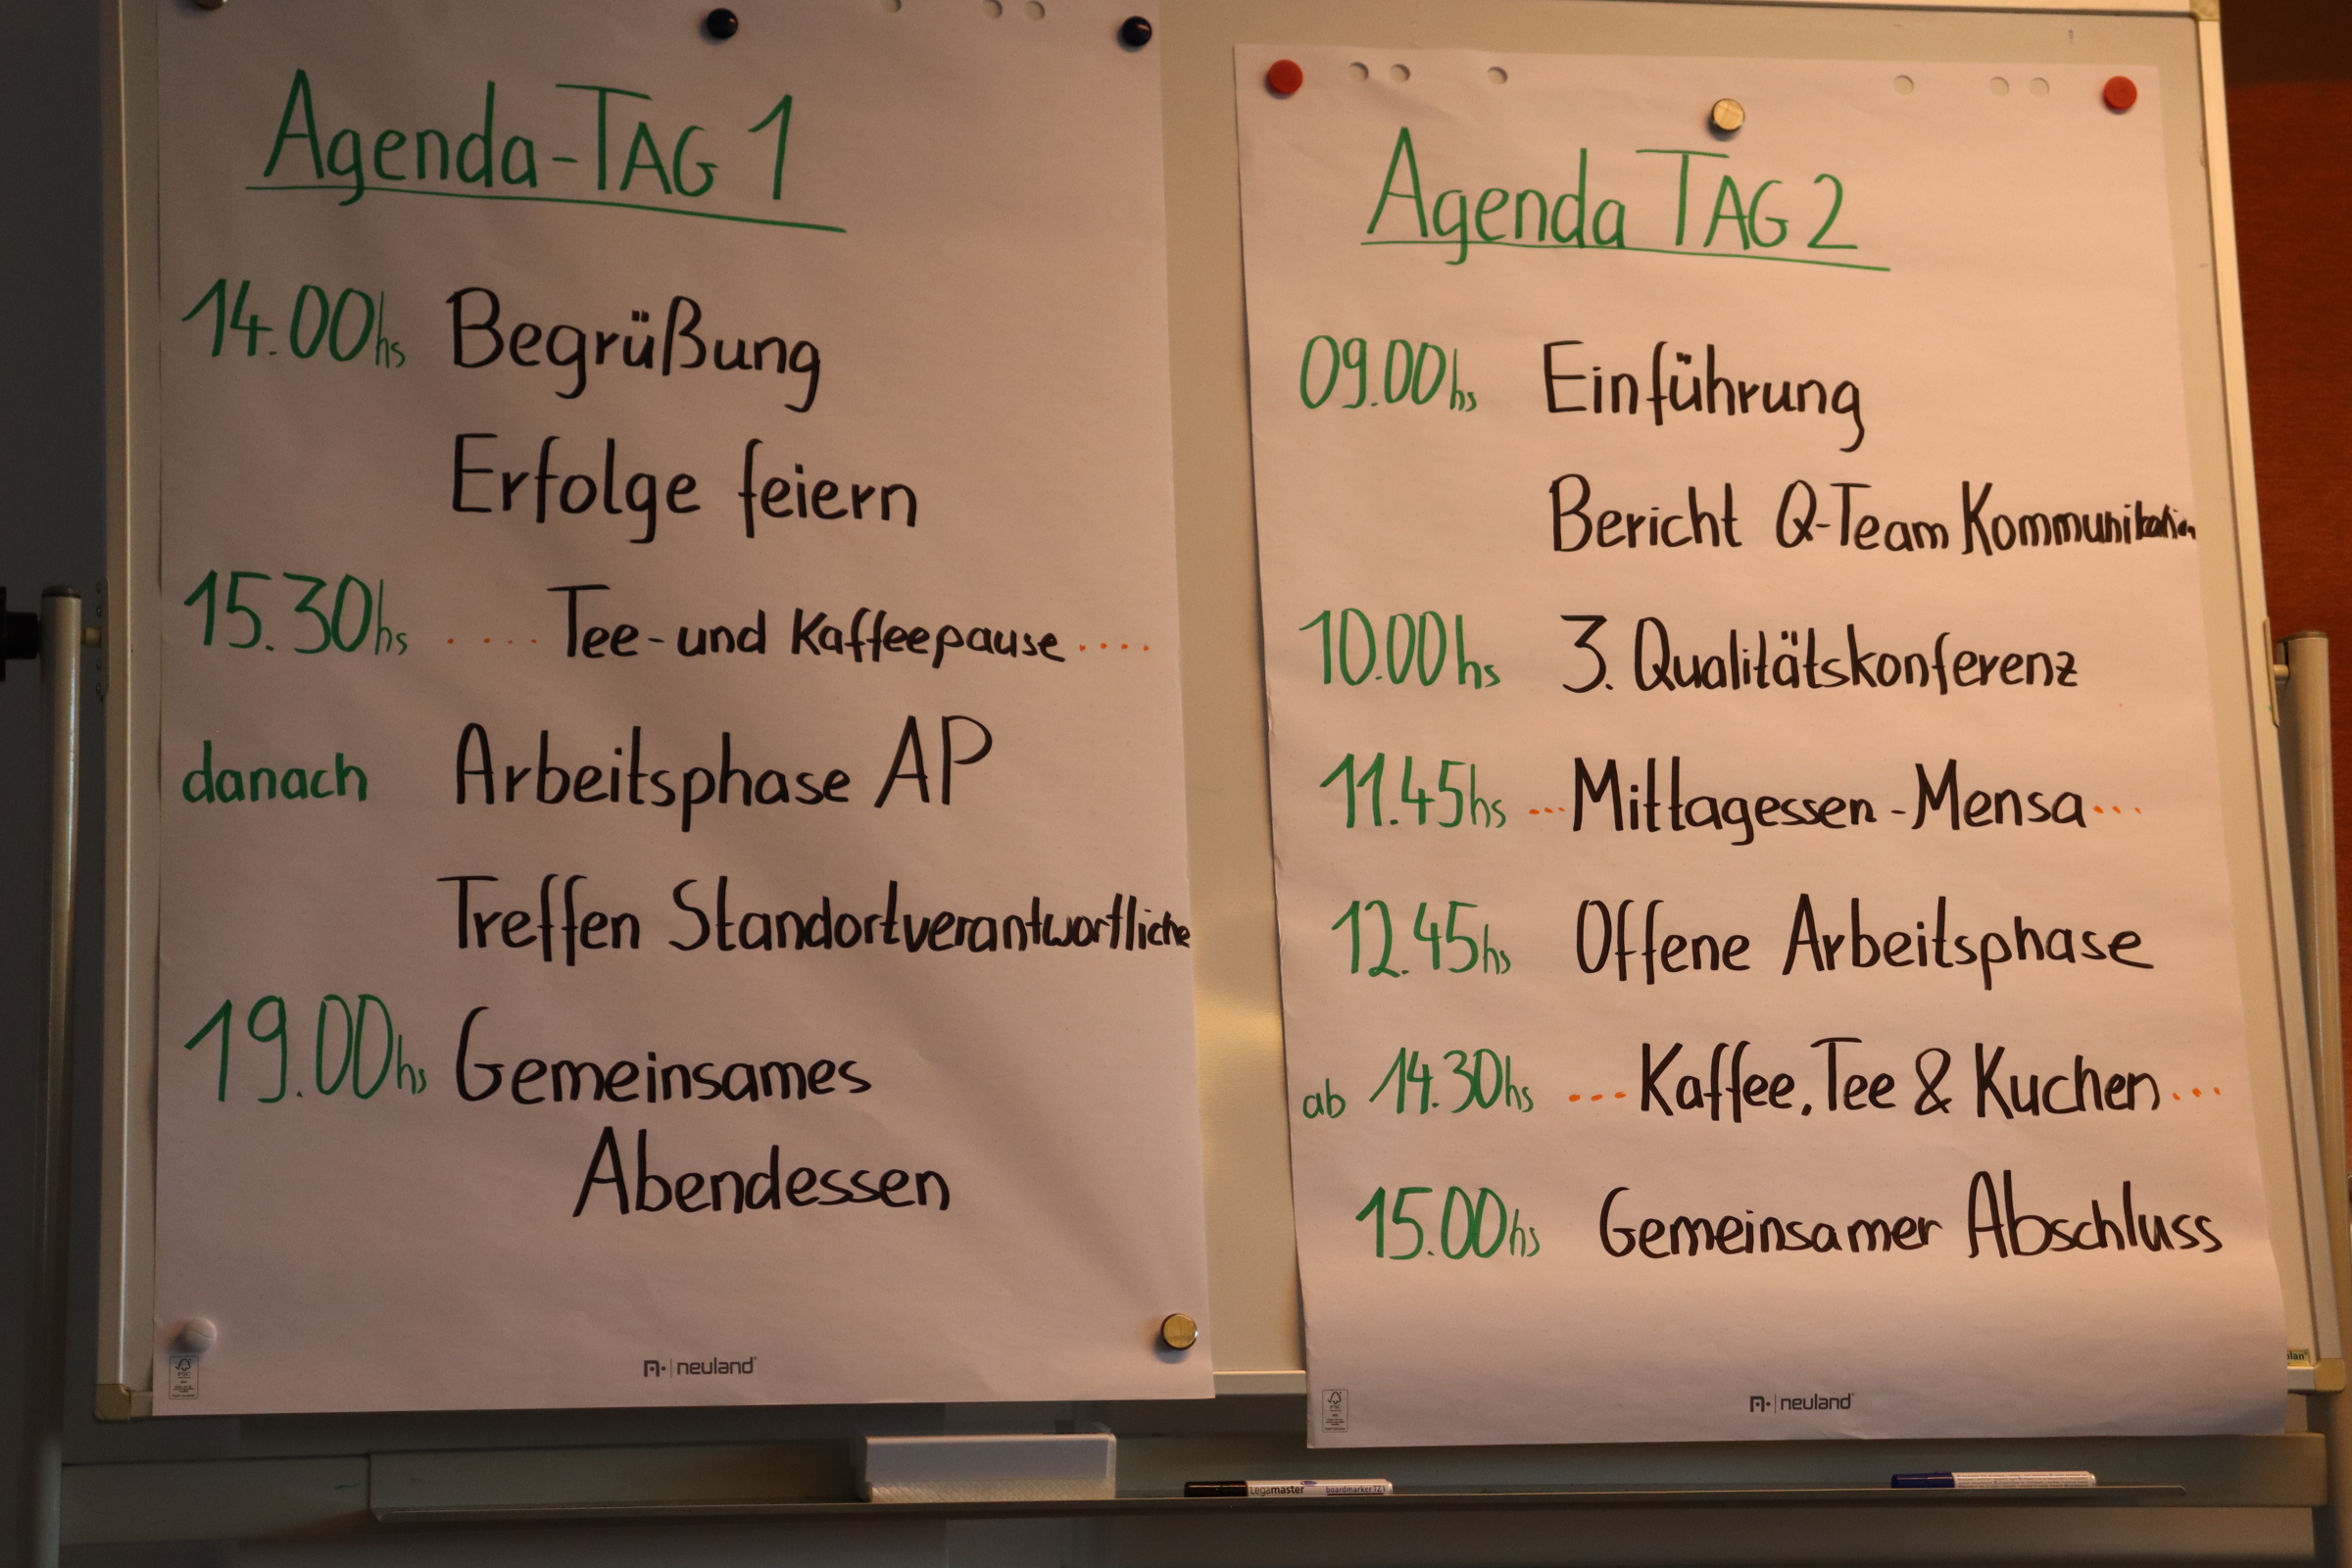 Agenda-TAG 1
14.00hs Begrüßung
Erfolge feiern
15.30hs .... Tee-und Kaffeepause ....
danach Arbeitsphase AP
Treffen Standortverantwortliche
19.00hs Gemeinsames
Abendessen
neuland
Agenda TAG 2
09.00hs Einführung
Bericht Q-Team Kommunikation
10.00hs 3. Qualitätskonferenz
11.45hs ... Mittagessen-Mensa ...
12.45hs Offene Arbeitsphase
ab 14.30hs ... Kaffee, Tee & Kuchen ...
15.00hs Gemeinsamer Abschluss
neuland
Legamaster boardmarker TZ1